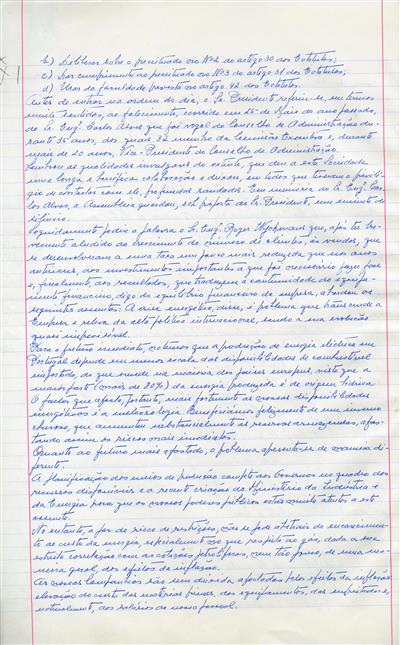 b) Deliberar sobre o preceituado no Nº2 do artigo 30 dos Estatutos;
c) Dar cumprimento ao preceituado no Nº3 do artigo 31 dos Estatutos;
d) Usar da faculdade prevista no artigo 42 dos Estatutos.
Antes de entrar na ordem do dia, o Sr. Presidente referiu-se, em termos
muito sentidos, ao falecimento, ocorrido em 25 de Maio do ano passado,
do Sr. Engº Carlos Alves que foi vogal do Conselho de Administração du-
rante 35 anos, dos quais 32 membro da Comissão Executiva e, durante
mais de 20 anos, Vice-Presidente do Conselho de Administração.
Lembrou as qualidades invulgares do extinto, que deu a esta Sociedade
uma longa e benéfica colaboração e deixou, em todos que tiveram o privilé-
gio de contactar com ele, profundas saudades. Em memória do Sr. Engº Car-
los Alves, a Assembleia guardou, sob proposta do Sr. Presidente, um minuto de
silêncio.
Seguidamente pediu a palavra o Sr. Engº Roger que, após ter bre-
vemente aludido ao crescimento do número de clientes, às vendas, que
se desenvolveram a uma taxa um pouco mais reduzida que nos anos
anteriores, aos investimentos importantes a que foi necessário fazer face
e, finalmente, aos resultados, que traduzem a continuidade do
financeiro, digo do equilíbrio financeiro da empresa, abordou os
seguintes assuntos: A crise energética, disse, é problema que transcende a
Empresa e releva da alta política internacional, sendo a sua evolução
quase imprevisível.
Para o futuro imediato, notemos que a produção de energia eléctrica em
Portugal depende em menor escala das disponibilidades de combustível
importado, do que sucede na maioria dos países europeus, visto que a
maior parte (mais de 80%) da energia produzida é de origem hídrica.
O factor que afecta, portanto, mais fortemente as nossas disponibilidades
energéticas é a meteorologia. Beneficiámos felizmente de um inverno
chuvoso, que aumentou substancialmente as reservas armazenadas, afas-
tando assim os riscos mais imediatos.
Quanto ao futuro mais afastado, o problema apresenta-se de maneira di-
ferente.
A planificação dos meios de produção compete aos Governos no quadro dos
recursos disponíveis e a recente criação do Ministério da Indústria e
da Energia prova que os nossos poderes públicos estão muito atentos a este
assunto.
No entanto, a par do risco de restrições, não se pode abstrair do encarecimen-
to do custo da energia, especialmente no que respeita ao gás, dada a sua
estreita correlação com as cotações petrolíferas, nem tão pouco, de uma ma-
neira geral, dos efeitos da inflação.
As nossas Companhias são sem dúvida afectadas pelos efeitos da inflação
elevação do custo das matérias primas, dos equipamentos, das empreitadas e,
naturalmente, dos salários do nosso pessoal.